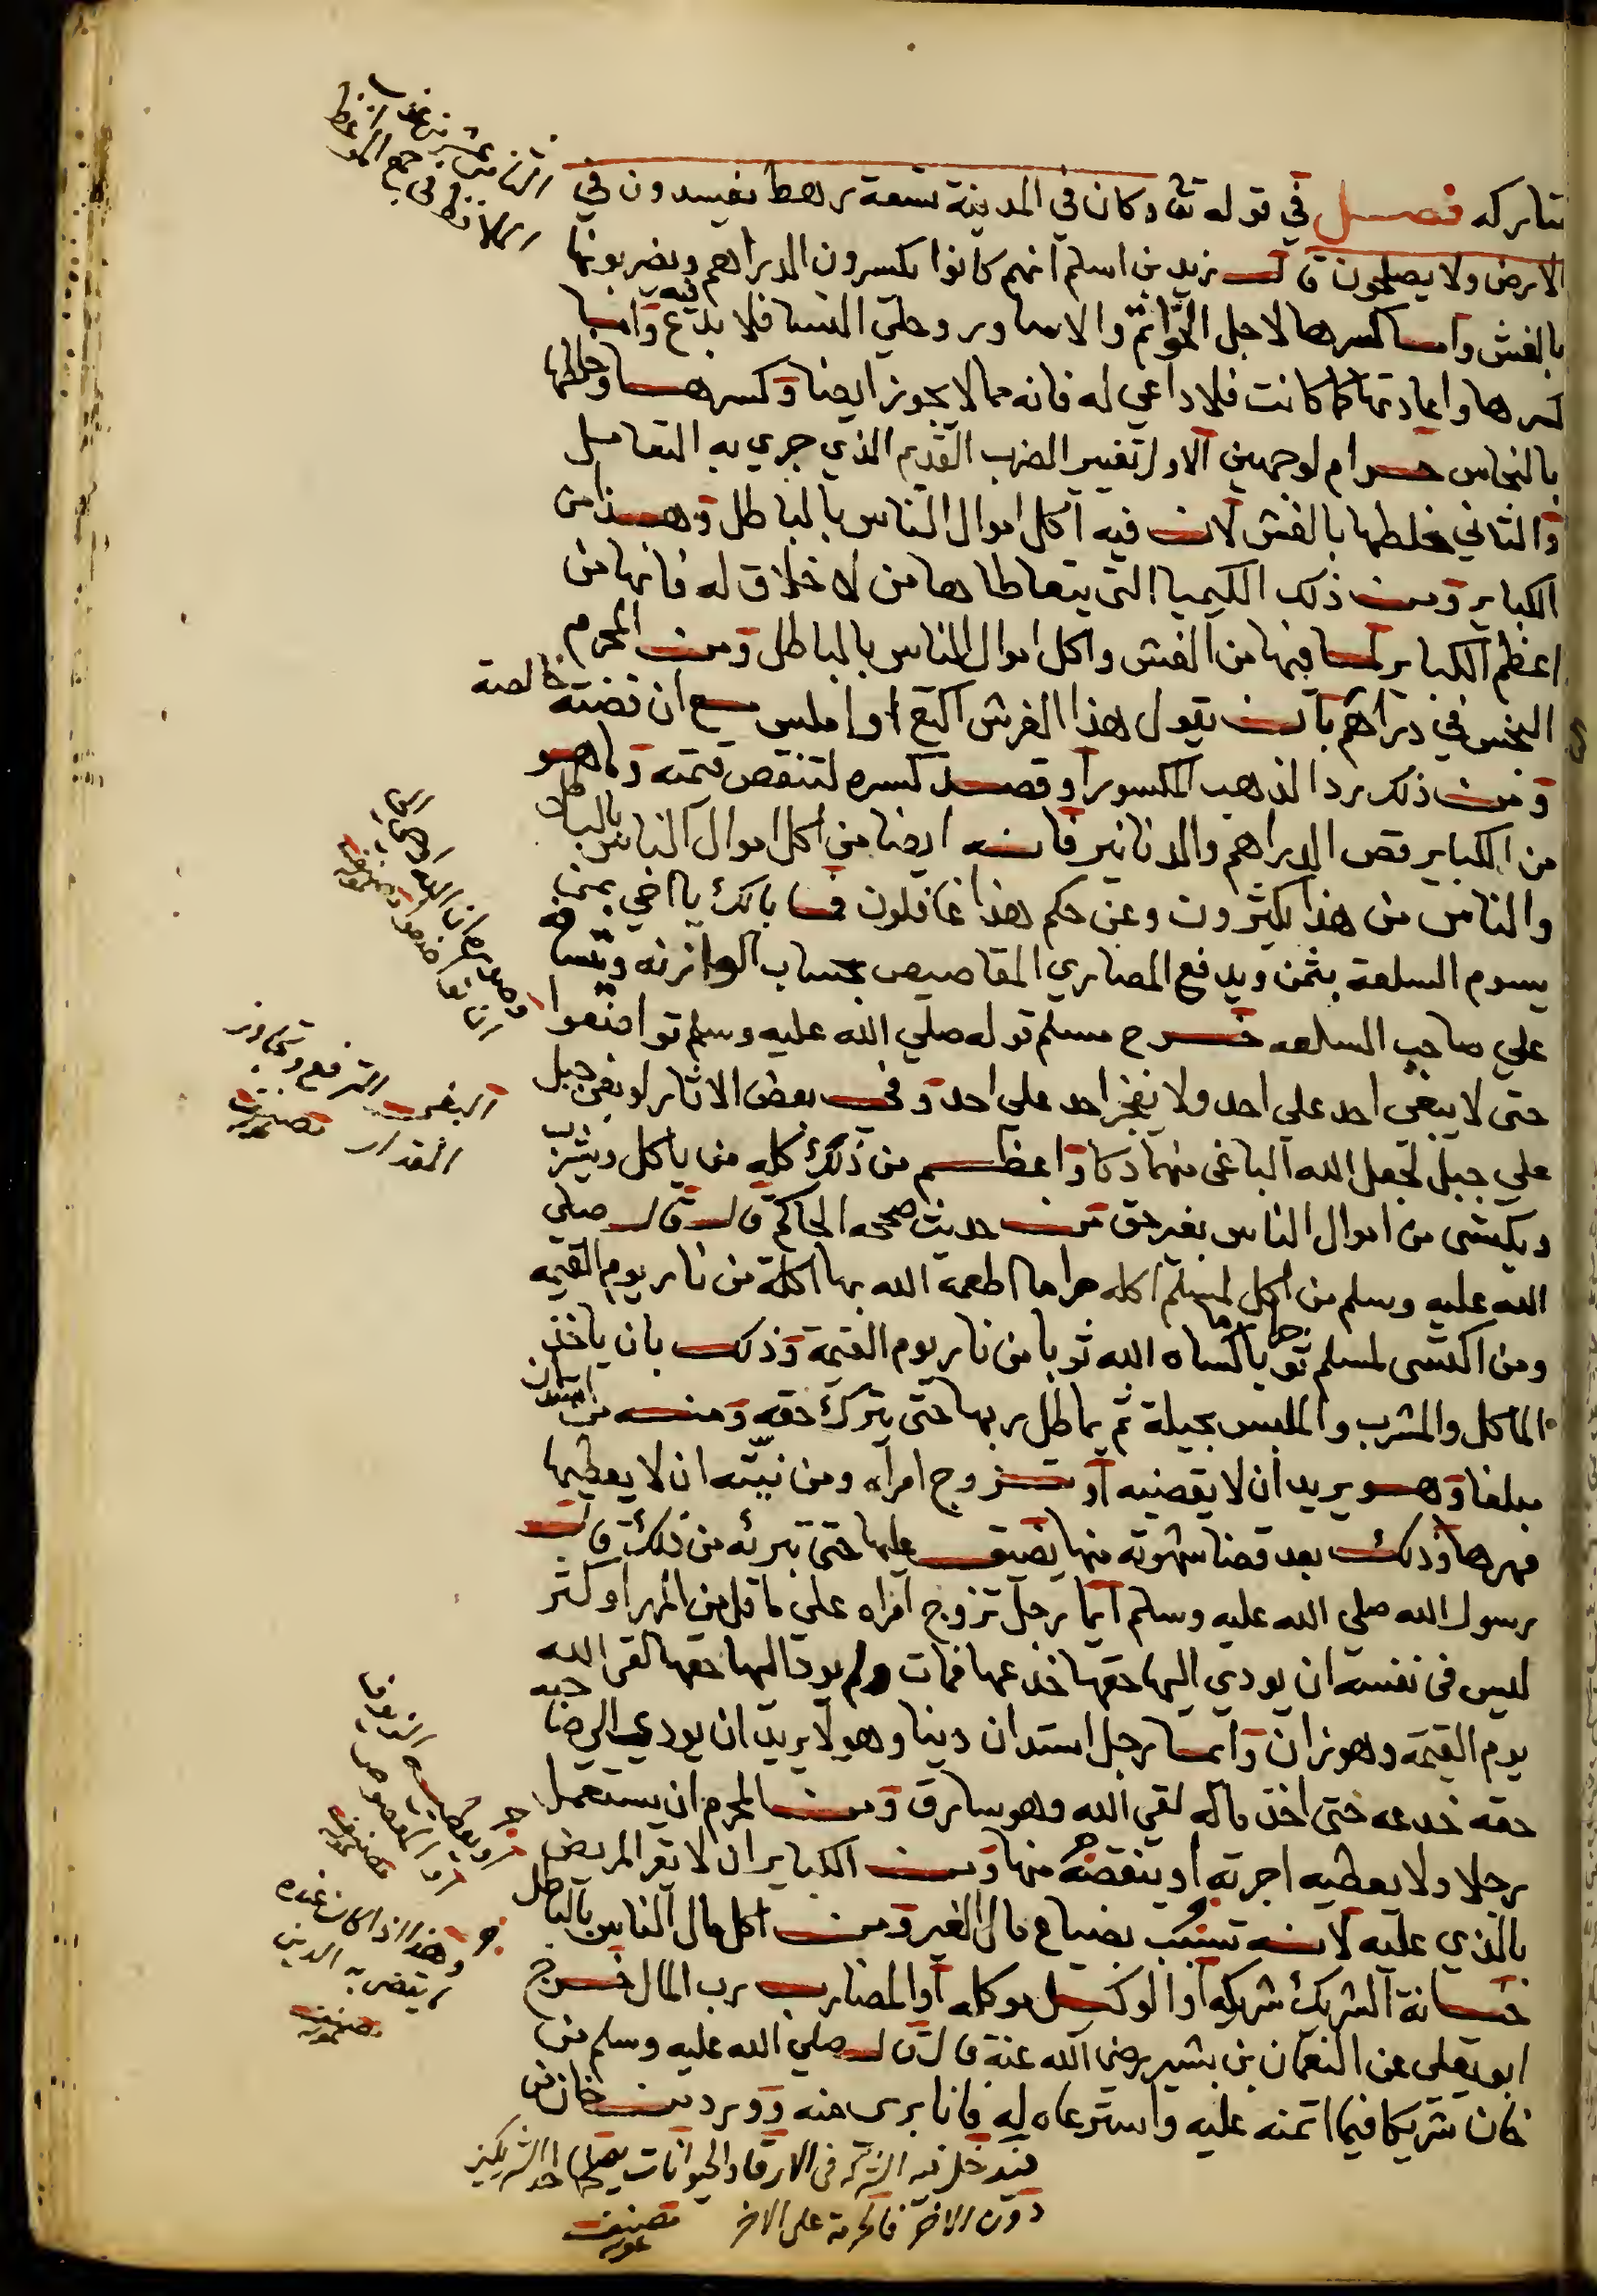 تتاركه فصل في قوله تعا وكان في المدينة تسعة رهط يفسدون في
الارض ولا يصلحون قال زيد بن اسلم انهم كانوا يكسرون الدراهم ويضربونها
بالغش واما كسرها لاجل الخواتم والاساور وحلي النسا فلا بدع فيه واما
كسرها واعادتها كما كانت فلا داعي له فانه مما لا يجوز ايضا وكسرها وخلطها
بالنحاس حرام لوجهين الاول تغيير الضرب القديم الذي جري به التعامل
والثاني خلطها بالغش لان فيه اكل اموال الناس بالباطل وهذا من
الكباير ومن ذلك الكيميا التي يتعاطاها من لا خلاق له فانها من
اعظم الكباير لما فيها من الغش واكل اموال الناس بالباطل ومن المحرم
البخس في دراهم بان يقول هذا القرش اكتع او املس مع ان فضته خالصة
ومن ذلك رد الذهب المكسور او قصد كسره لتنقص قيمته وما هو
من الكباير قص الدراهم والدنانير فانه ايضا من اكل اموال الناس بالباطل
والناس من هذا يكثرون وعن حكم هذا غافلون فما بالك يا اخي بمن
يسوم السلعة بثمن ويدفع المصاري المقاصيص بحساب الوازنه ويتسافه
علي صاحب السلعه خرج مسلم قوله صلي الله عليه وسلم تواضعوا
حتى لا يبغي احد على احد ولا يفخر احد علي احد وفي بعض الاثار لو بغى جبل
علي جبل لجعل الله الباغي منهما دكا واعظم من ذلك كله من ياكل ويشرب
ويكتسي من اموال الناس بغير حق من حديث صححه الحاكم قال قال صلي
الله عليه وسلم من اكل لمسلم اكله حراما اطعمه الله بها اكلة من نار يوم القيمه
ومن اكتسى لمسلم ثوبا حراما كساه الله ثوبا من نار يوم القيمة وذلك بان ياخذ
الماكل والمشرب والملبس بحيلة ثم يماطل ربها حتى يترك حقه ومنه من استدان
مبلغا وهو يريد ان لا يقضيه او تزوج امراه ومن نيته ان لا يعطيها
مهرها وذلك بعد قضا شهوته منها يضيق عليها حتى تبرئه من ذلك قال
رسول الله صلي الله عليه وسلم ايما رجل تزوج امراه علي ما قل من المهر او كثر
ليس في نفسه ان يودي اليها حقها خدعها فمات ولم يود اليها حقها لقي الله
يوم القيمة وهو زان وايما رجل استدان دينا وهو لا يريد ان يودي الي صاحبه
حقه خدعه حتى اخذ ماله لقي الله وهو سارق ومن المحرم ان يستعمل
رجلا ولا يعطيه اجرته او ينقصه منها ومن الكباير ان لا يقر المريض
بالذي عليه لانه تسبب بضياع مال الغير ومن اكل مال الناس بالباطل
خيانة الشريك شريكه او الوكيل موكله او المضارب رب المال خرج
ابو يعلى عن النعمان بن بشير رضى الله عنه قال قال صلي الله عليه وسلم من
خان شريكا فيما ائتمنه عليه واسترعاه له فانا بري منه وورد من خان من
فيدخل فيه الشركه في الارقا والحيوانات احد الشريكين
دون الاخر على الاخر تصنيف
الثامن عشر
البغي الترفع وتجاوز
المقدار تصنيف
او يعطيه الزيوف
او المقصوص
تصنيف
وهذا اذا كان عنده
ما يقضي به الدين
تصنيف